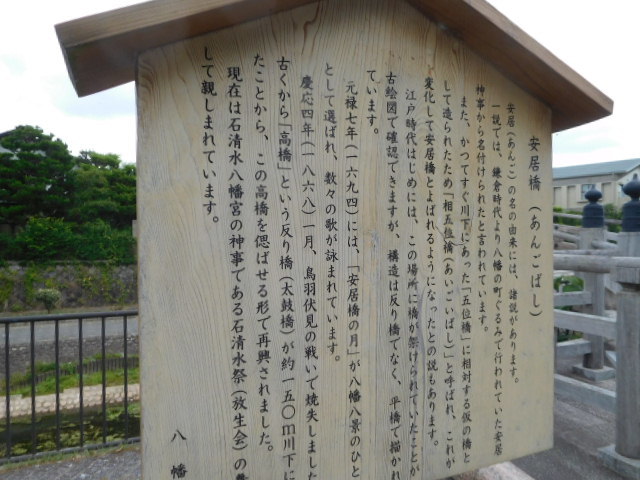 安居橋（あんごばし）
安居（あんご）の名の由来には、諸説があります。
一説では、鎌倉時代より八幡の町ぐるみで行われていた安居
神事から名付けられたと言われています。
また、かつてすぐ川下にあった「五位橋」に相対する仮の橋と
して造られたため「相五位橋（あいごいばし）」と呼ばれ、これが
変化して安居橋とよばれるようになったとの説もあります。
江戸時代はじめには、この場所に橋が架けられていたことが
古絵図で確認できますが、構造は反り橋でなく、平橋で描かれ
ています。
元禄七年（一六九四）には、「安居橋の月」が八幡八景のひと
として選ばれ、数々の歌が詠まれています。
慶応四年（一八六八）一月、鳥羽伏見の戦いで焼失しました
古くから「高橋」という反り橋（太鼓橋）が約一五〇ｍ川下に
たことから、この高橋を偲ばせる形で再興されました。
現在は石清水八幡宮の神事である石清水祭（放生会）の
して親しまれています。
八幡